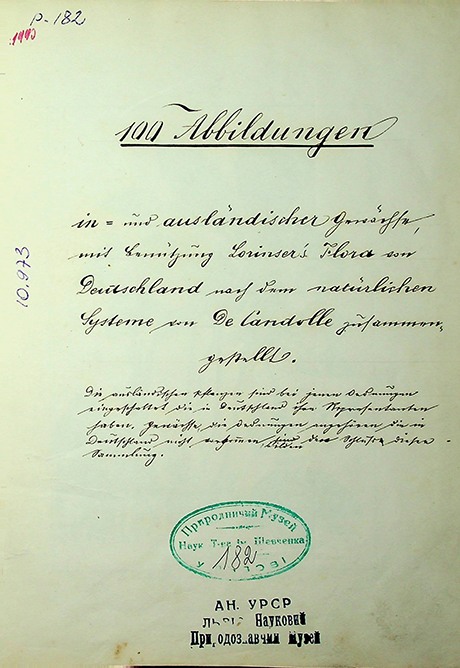 P-182
1993
100 Abbildungen
in= und ausländischer Gewächse,
mit Benützung Lorinser's Flora von
Deutschland nach dem natürlichen
Systeme von De Candolle zusammen-
gestellt.
10.973
Die ausländischen Pflanzen sind bei jenen Ordnungen
eingeschaltet die in Deutschland ihre Representanten
haben. Gewächse, die Ordnungen angehören die in
Deutschland nicht vorkommen bilden den Schluss dieser
Sammlung.
Природничий Музей
Наук. Т-ва ім. Шевченка
182
у Львові
АН. УРСР
Львів Науковий
Природознавчий музей